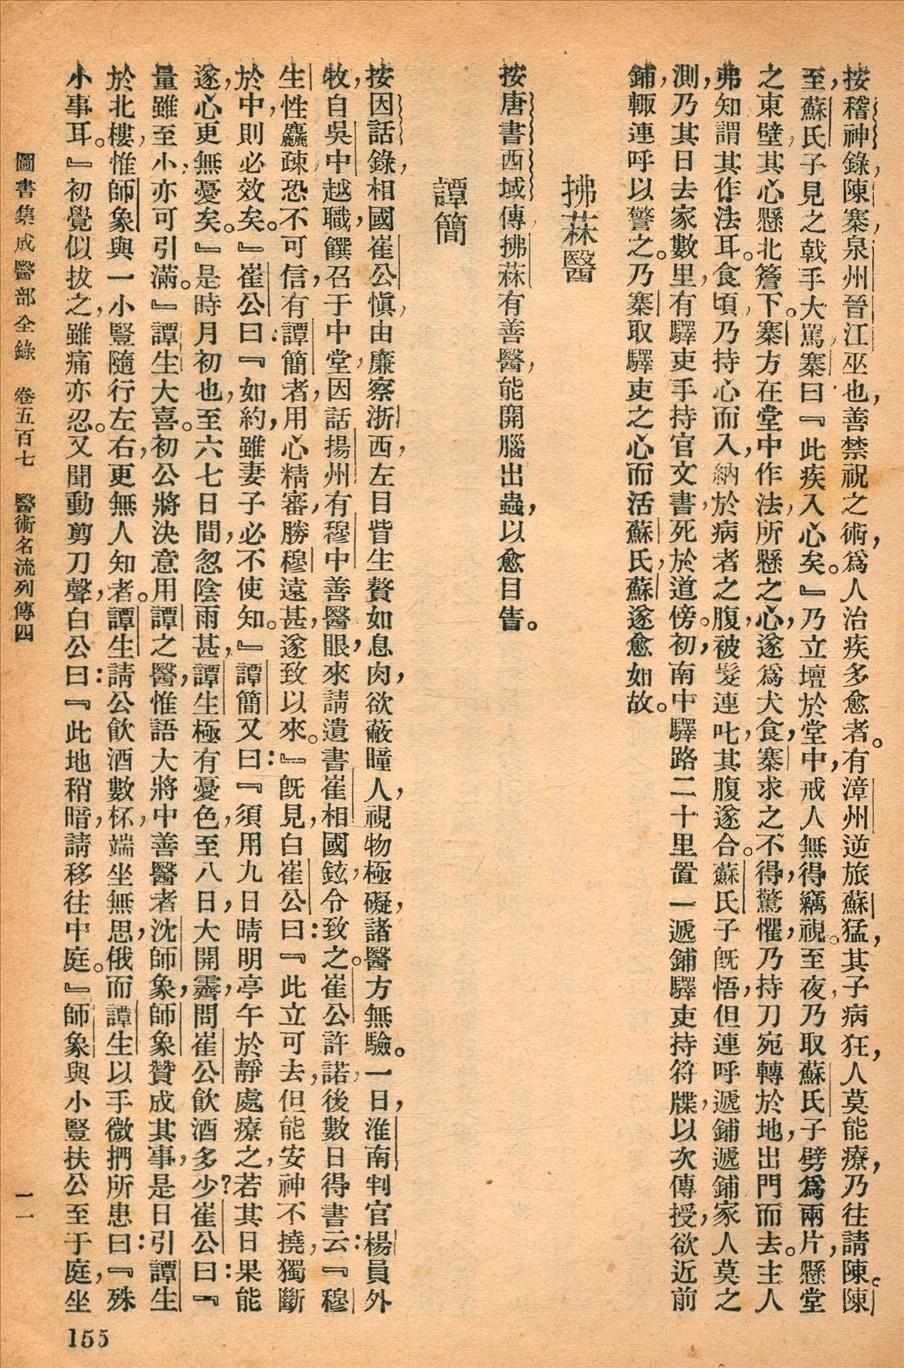 按稽神錄，陳寨，泉州晉江巫也，善禁祝之術，爲人治疾多愈者。有漳州逆旅蘇猛，其子病狂，人莫能療，乃往請陳。陳
至，蘇氏子見之，戟手大罵寨曰『此疾入心矣。』乃立壇於堂中，戒人無得竊視。至夜，乃取蘇氏子劈爲兩片，懸堂
之東壁，其心懸北簷下。寨方在堂中作法，所懸之心，遂爲犬食，寨求之不得，驚懼，乃持刀宛轉於地，出門而去。主人
弗知，謂其作法耳。食頃，乃持心而入，納於病者之腹，被髮連叱，其腹遂合。蘇氏子既悟，但連呼遞鋪遞鋪，家人莫之
測，乃其日去家數里，有驛吏手持官文書，死於道傍。初，南中驛路二十里置一遞鋪，驛吏持符牒，以次傳授，欲近前
鋪，輒連呼以警之。乃寨取驛吏之心而活蘇氏，蘇遂愈如故。
拂菻醫
按唐書西域傳，拂菻有善醫，能開腦出蟲，以愈目眚。
譚簡
按因話錄，相國崔公愼，由廉察浙西，左目眥生贅如息肉，欲蔽瞳人，視物極礙，諸醫方無驗。一日，淮南判官楊員外
牧，自吳中越職，饌召于中堂，因話揚州有穆中善醫眼，來請遺書崔相國鉉令致之。崔公許諾，後數日得書云：『穆
生性麤疎，恐不可信，有譚簡者，用心精審，勝穆遠甚，遂致以來。』既見，白崔公曰『此立可去，但能安神不撓，獨斷
於中，則必效矣。』崔公曰：『如約，雖妻子必不使知。』譚簡又曰：『須用九日晴明亭午於靜處療之，若其日果能
遂心，更無憂矣。』是時月初也，至六七日間，忽陰雨甚，譚生極有憂色，至八日，大開霽，問崔公飲酒多少？崔公曰：『
量雖至小，亦可引滿。』譚生大喜。初公將決意用譚之醫，惟語大將中善醫者沈師象，師象贊成其事，是日引譚生
於北樓，惟師象與一小豎隨行左右，更無人知者。譚生請公飲酒數杯，端坐無思，俄而譚生以手微捫所患曰：『殊
小事耳。』初覺似拔之，雖痛亦忍。又聞動剪刀聲，白公曰：『此地稍暗，請移往中庭。』師象與小豎扶公至于庭，坐
圖書集成醫部全錄 卷五百七 醫術名流列傳四 一一
155